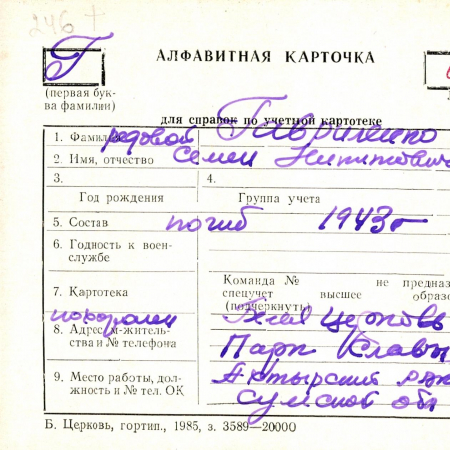 246 +
Г
АЛФАВИТНАЯ КАРТОЧКА
(первая бук-
ва фамилии)
для справок по учетной картотеке
1. Фамилия рядовой Гавриленко
2. Имя, отчество Семен Никитович
3. 4.
Год рождения Группа учета
5. Состав погиб 1943 г
6. Годность к воен-
службе
Команда № не предназ
7. Картотека спецучет высшее образо
(подчеркнуть)
похоронен Белая Церковь
8. Адрес м-житель-
ства и № телефона Парк Славы
9. Место работы, дол- Ахтырский р-н
жность и № тел. ОК Сумской обл
Б. Церковь, гортип., 1985, з. 3589—20000